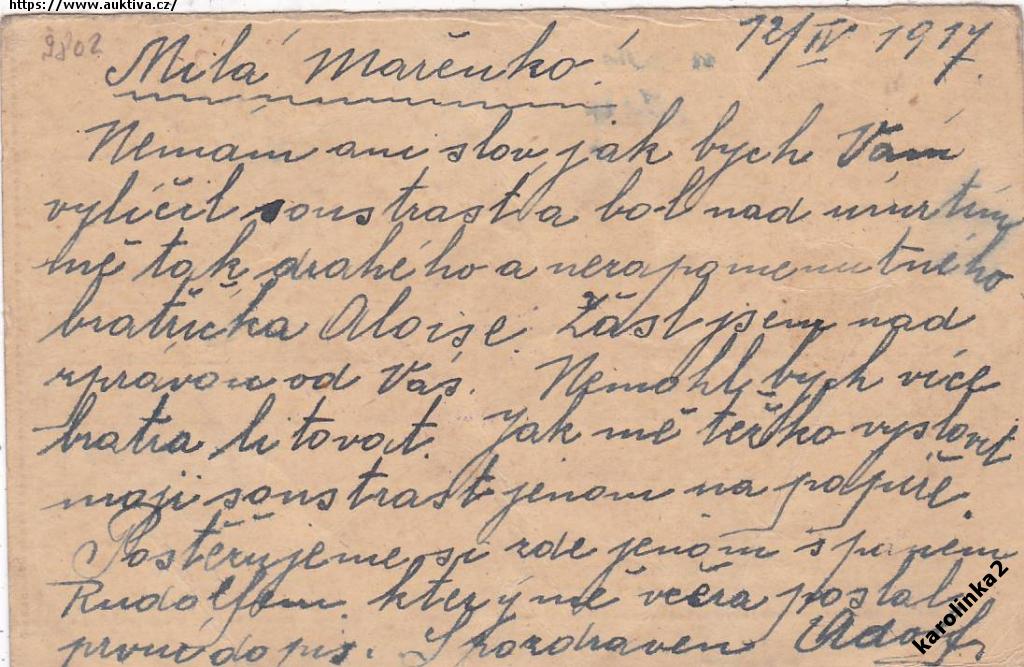 https://www.auktiva.cz/
9802
12/IV 1917.
Milá Mařenko!
Nemám ani slov jak bych Vám
vylíčil soustrast a bol nad úmrtím
mě tak drahého a nezapomenutného
bratříčka Aloise. Žásl jsem nad
zprávou od Vás. Nemohl bych více
bratra litovat. Jak mě těžko vyslovit
moji soustrast jenom na papíře.
Postěžujeme si zde jenom s panem
Rudolfem, který mě včera poslal
první dopis. S pozdravem Adolf
karolinka2